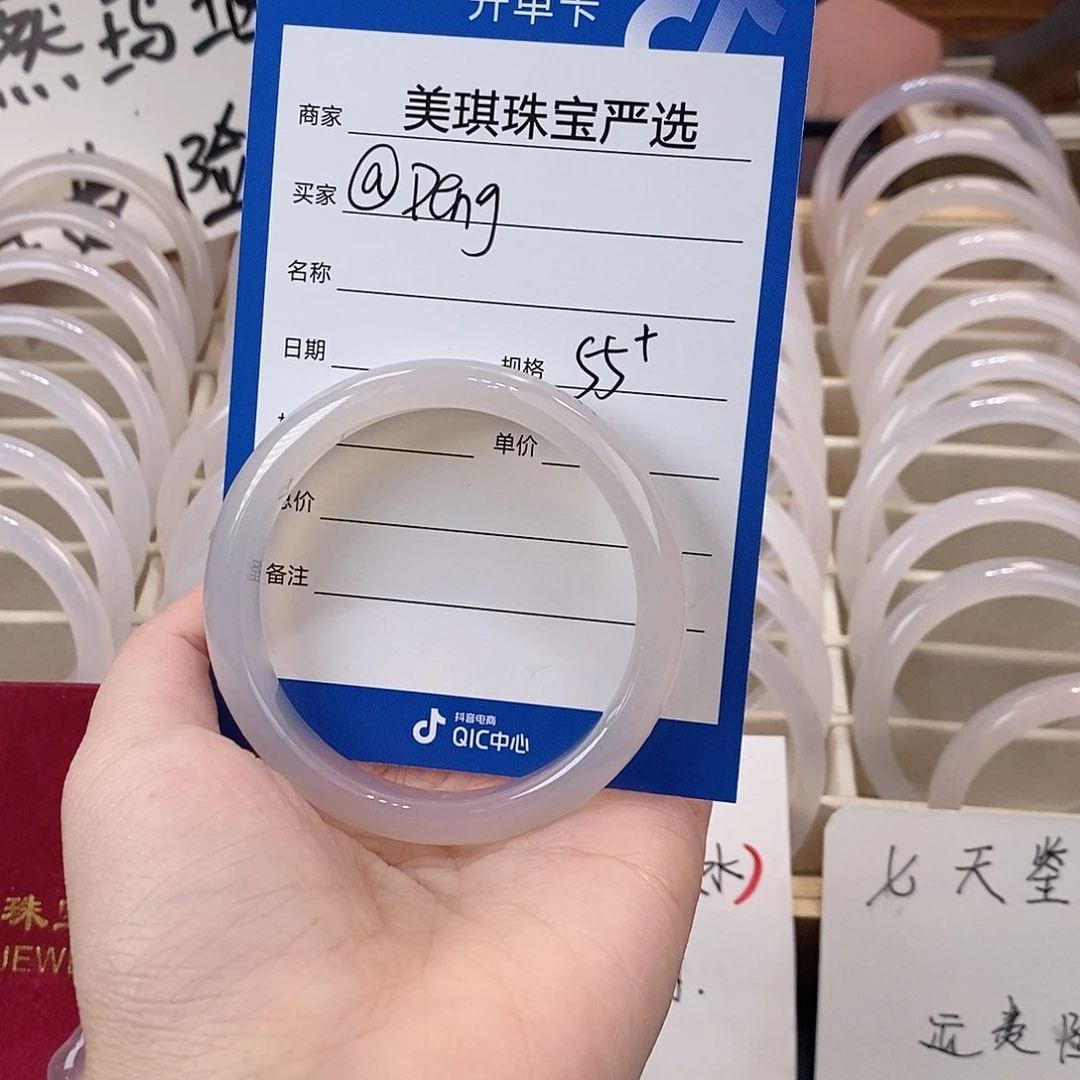 开单卡
商家 美琪珠宝严选
买家 @Deng
名称
日期 规格 55+
单价
总价
备注
抖音电商
QIC中心
然玛
验
水)
七天鉴
运费
珠
JEWE